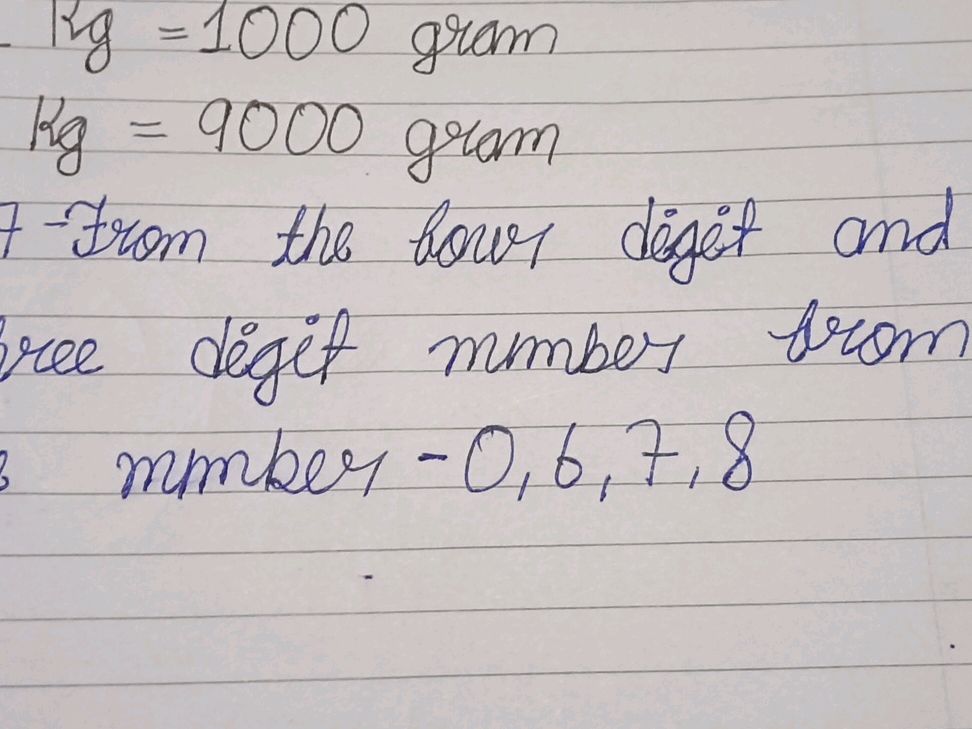 Kg = 1000 gram
Kg = 9000 gram
7 - From the four digit and
hree digit number from
number - 0, 6, 7, 8